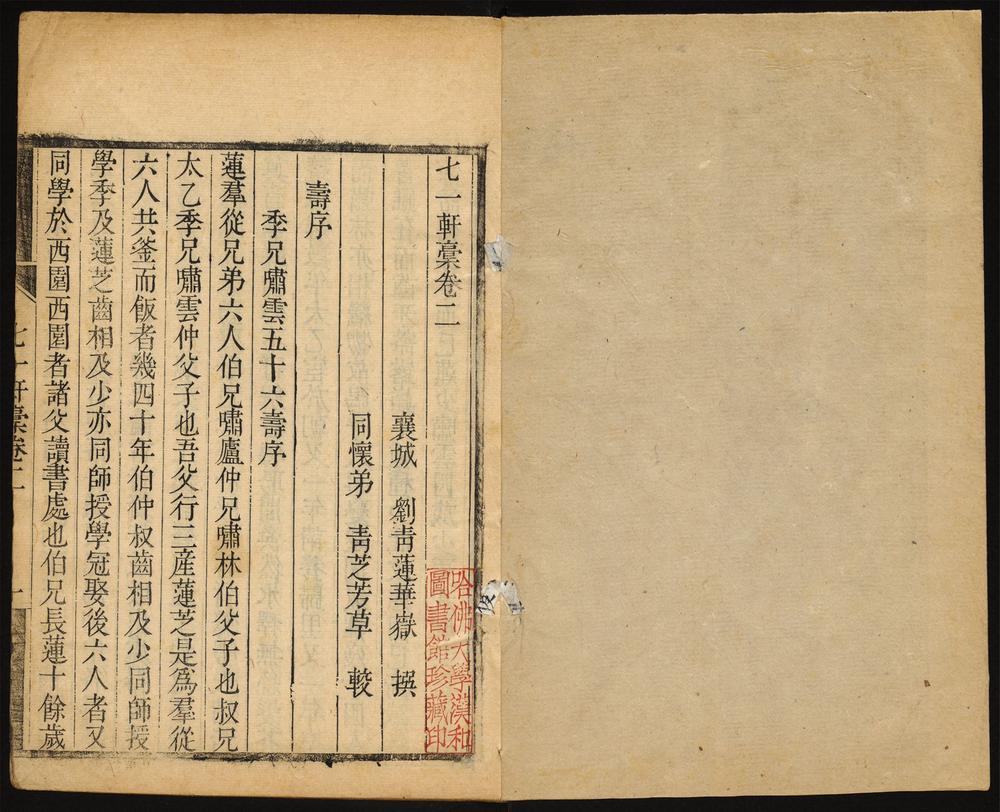 七一軒稾卷二
襄城 劉青蓮華嶽 撰
同懷弟 青芝芳草 較
壽序
季兄嘯雲五十六壽序
蓮羣從兄弟六人伯兄嘯廬仲兄嘯林伯父子也叔兄
太乙季兄嘯雲仲父子也吾父行三産蓮芝是爲羣從
六人共釜而飯者幾四十年伯仲叔齒相及少同師授
學季及蓮芝齒相及少亦同師授學冠娶後六人者又
同學於西園西園者諸父讀書處也伯兄長蓮十餘歲
七一軒稾卷二
一
哈佛大學漢和
圖書館珍藏印